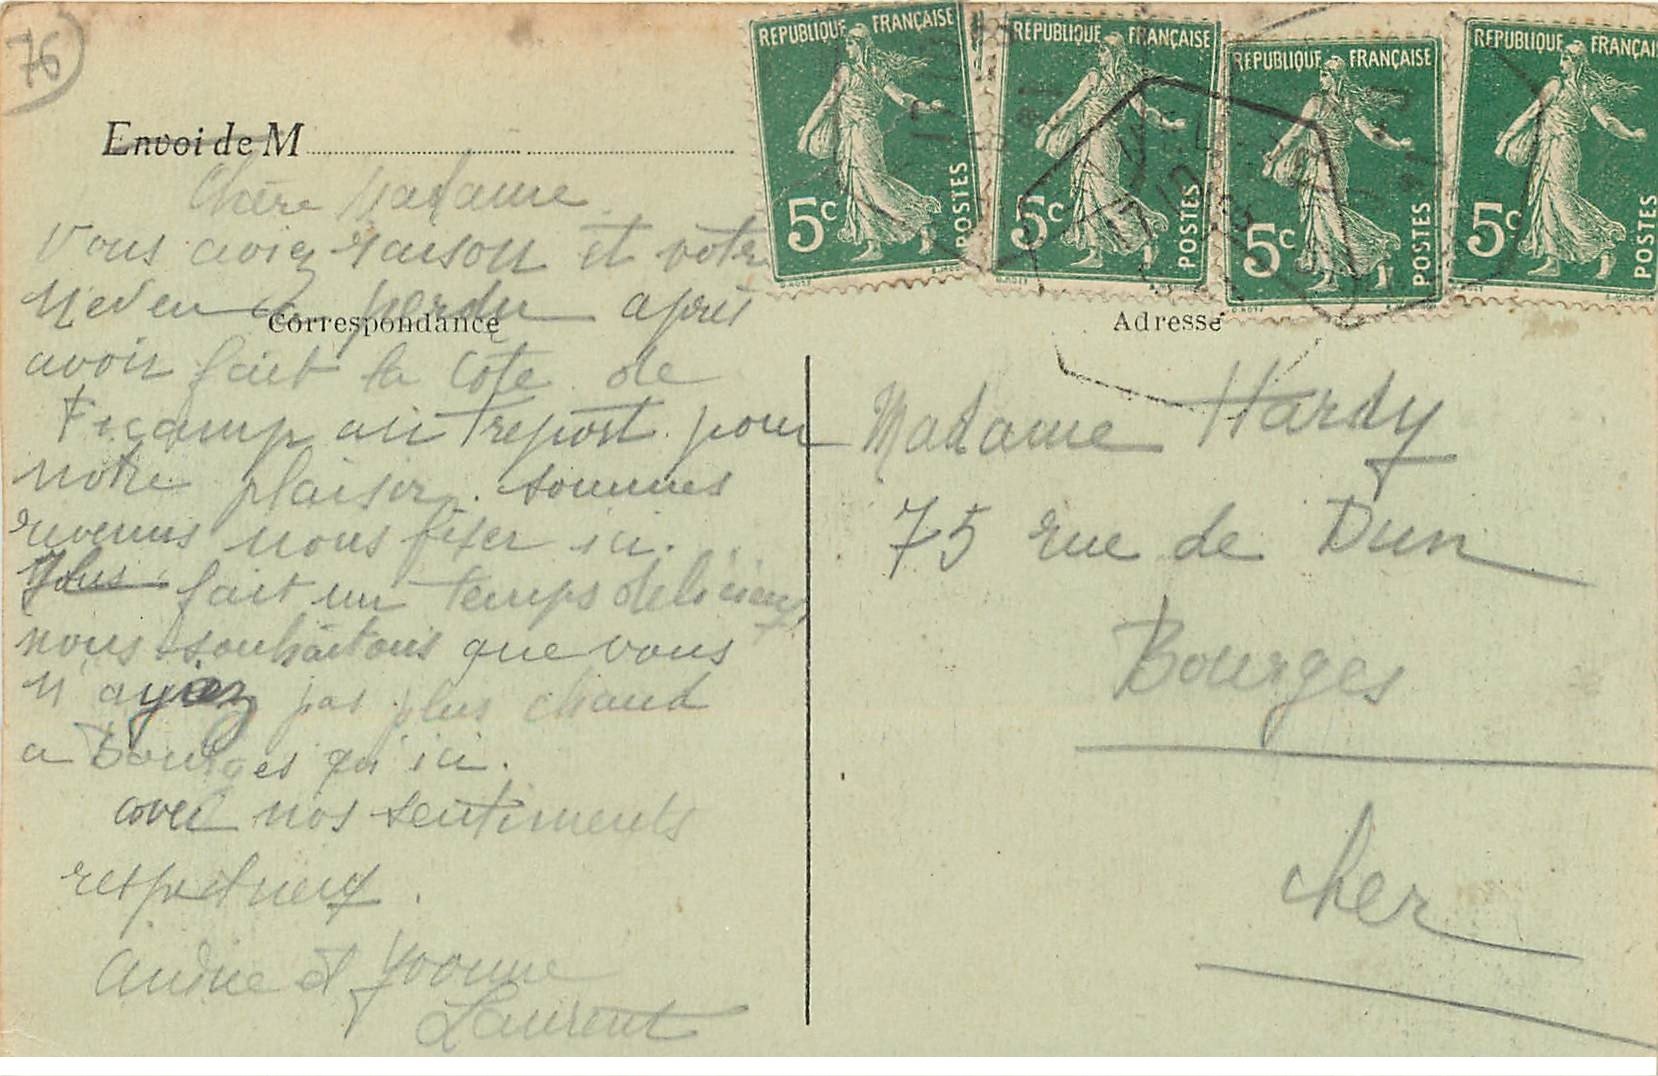 76
Envoi de M
REPUBLIQUE FRANÇAISE
5c
POSTES
REPUBLIQUE FRANÇAISE
5c
POSTES
REPUBLIQUE FRANÇAISE
5c
POSTES
REPUBLIQUE FRANÇAISE
5c
POSTES
Chère Madame
Vous aviez raison et votre
neveu a perdu après
Correspondance
avoir fait la Côte de
Feçamp au Treport pour
notre plaisir. sommes
revenus nous fixer ici.
fait un temps delicieux,
nous souhaitons que vous
n'ayiez pas plus chaud
a Bourges qu'ici.
avec nos sentiments
respectueux.
André et Yvonne
Laurent
Adresse
Madame Hardy
75 rue de Dun
Bourges
Cher